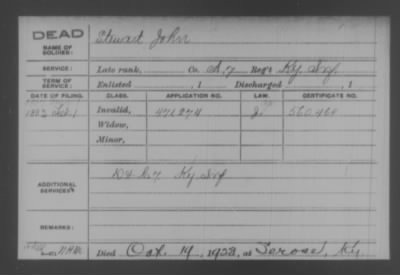 DEAD
NAME OF SOLDIER:
Stewart John
SERVICE:
Late rank, Co. A, 7 Reg't Ky. Inf.
TERM OF SERVICE:
Enlisted , 1 Discharged , 1
DATE OF FILING. CLASS. APPLICATION NO. LAW. CERTIFICATE NO.
Invalid, 471274 560464
Widow,
Minor,
ADDITIONAL SERVICES:
7 Ky Inf
REMARKS:
Died Oct. 19, 1932, at Ky